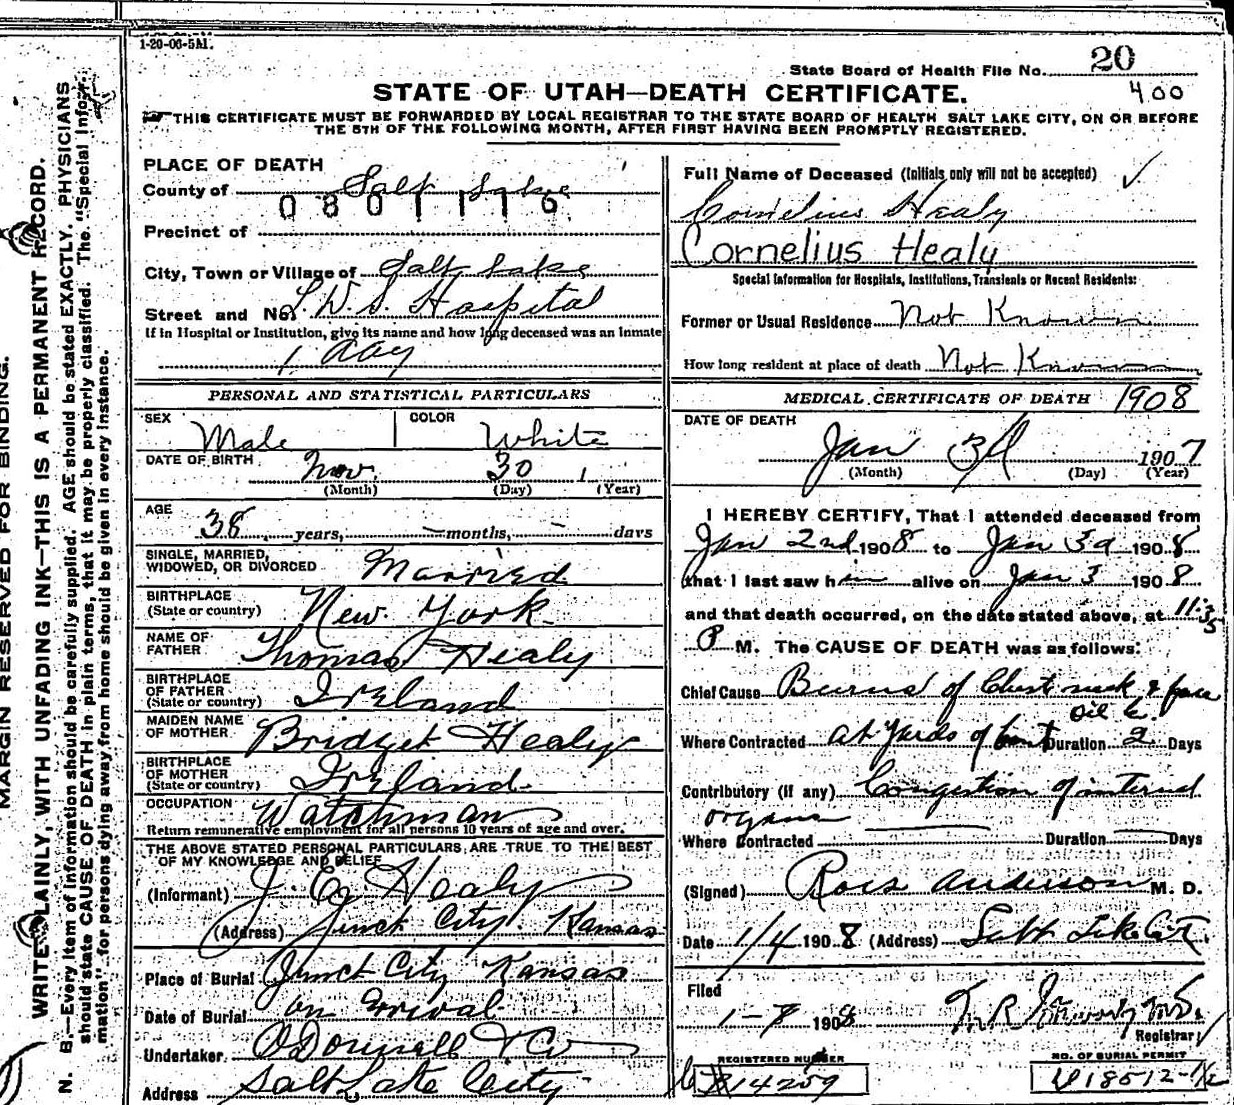 1-20-06-5M.
State Board of Health File No. 20
4.00
STATE OF UTAH—DEATH CERTIFICATE.
THIS CERTIFICATE MUST BE FORWARDED BY LOCAL REGISTRAR TO THE STATE BOARD OF HEALTH SALT LAKE CITY, ON OR BEFORE
THE 5TH OF THE FOLLOWING MONTH, AFTER FIRST HAVING BEEN PROMPTLY REGISTERED.
PLACE OF DEATH
County of Salt Lake
0801116
Precinct of
City, Town or Village of Salt Lake
Street and No. L.D.S. Hospital
If in Hospital or Institution, give its name and how long deceased was an inmate
1 day
Full Name of Deceased (Initials only will not be accepted) ✓
Cornelius Healy
Cornelius Healy
Special Information for Hospitals, Institutions, Transients or Recent Residents:
Former or Usual Residence Not Known
How long resident at place of death Not Known
PERSONAL AND STATISTICAL PARTICULARS
SEX Male COLOR White
DATE OF BIRTH Nov. 30 1
(Month) (Day) (Year)
AGE 38 years, — months, — days
SINGLE, MARRIED,
WIDOWED, OR DIVORCED Married
BIRTHPLACE
(State or country) New York
NAME OF
FATHER Thomas Healy
BIRTHPLACE
OF FATHER
(State or country) Ireland
MAIDEN NAME
OF MOTHER Bridget Healy
BIRTHPLACE
OF MOTHER
(State or country) Ireland
OCCUPATION Watchman
Return remunerative employment for all persons 10 years of age and over.
THE ABOVE STATED PERSONAL PARTICULARS ARE TRUE TO THE BEST
OF MY KNOWLEDGE AND BELIEF
(Informant) J. E. Healy
(Address) Junct City. Kansas
Place of Burial Junct City Kansas
Date of Burial on arrival
Undertaker O'Donnell & Co
Address Salt Lake City
MEDICAL CERTIFICATE OF DEATH 1908
DATE OF DEATH
Jan 3d 1907
(Month) (Day) (Year)
I HEREBY CERTIFY, That I attended deceased from
Jan 2nd 1908 to Jan 3d 1908
that I last saw him alive on Jan 3 1908
and that death occurred, on the date stated above, at 11:35
P M. The CAUSE OF DEATH was as follows:
Chief Cause Burns of Chest neck & face
Oil Co.
Where Contracted at yards of Duration 2 Days
Contributory (if any) Congestion of internal
organs
Where Contracted Duration Days
(Signed) Ross Anderson M. D.
Date 1/4 1908 (Address) Salt Lake City
Filed
1-7 1908
Registrar
REGISTERED NUMBER
14259
NO. OF BURIAL PERMIT
18512-1/2
MARGIN RESERVED FOR BINDING.
WRITE PLAINLY, WITH UNFADING INK—THIS IS A PERMANENT RECORD.
N. B.—Every item of information should be carefully supplied. AGE should be stated EXACTLY. PHYSICIANS
should state CAUSE OF DEATH in plain terms, that it may be properly classified. The "Special Infor-
mation" for persons dying away from home should be given in every instance.